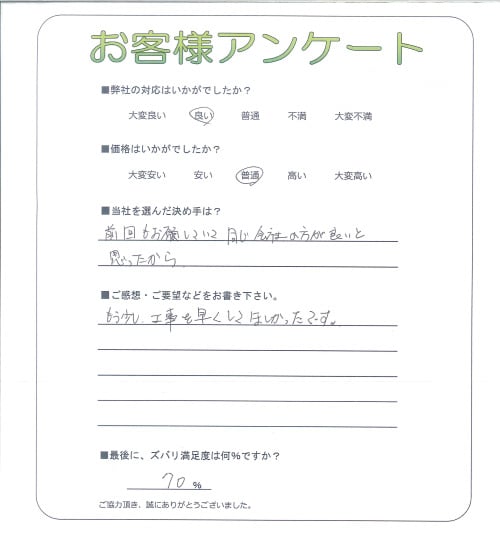 お客様アンケート
■弊社の対応はいかがでしたか?
大変良い 良い 普通 不満 大変不満
■価格はいかがでしたか?
大変安い 安い 普通 高い 大変高い
■当社を選んだ決め手は?
前回もお願していて同じ会社の方が良いと
思ったから
■ご感想・ご要望などをお書き下さい。
もう少し、工事を早くしてほしかったです。
■最後に、ズバリ満足度は何%ですか?
70 %
ご協力頂き、誠にありがとうございました。